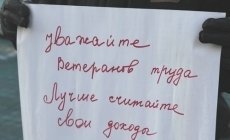 уважайте
Ветеранов труда
Лучше считайте
свои дохода